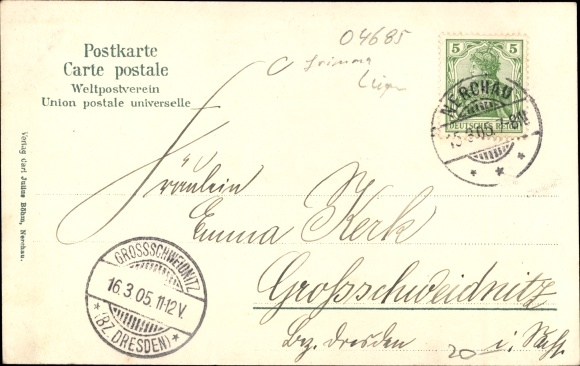 Postkarte
Carte postale
Weltpostverein
Union postale universelle
Verlag Carl Julius Böhm, Nerchau.
04685
Grimma
5 5
DEUTSCHES REICH
NERCHAU
15.3.05. 7-8N
* * *
Fräulein
Emma Kerk
Grossschweidnitz
Bez. Dresden i. Sachs.
20
GROSSSCHWEIDNITZ
16.3.05.11-12V.
* (BZ. DRESDEN) *